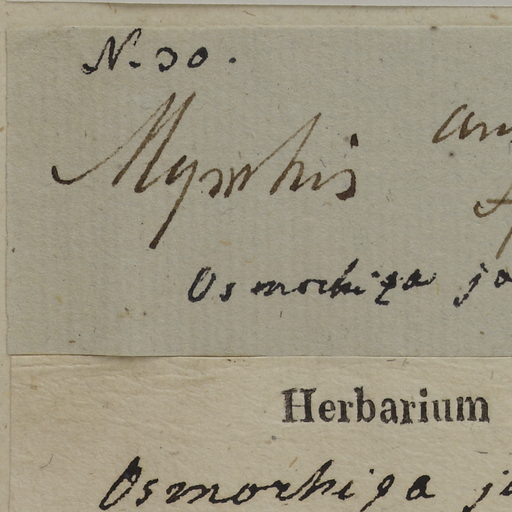 N. 30.
Myrrhis
Osmorhiza
Herbarium
Osmorhiza